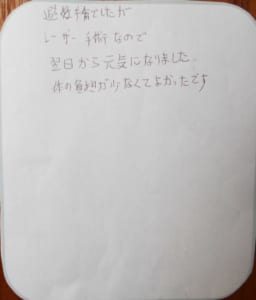 避妊手術でしたが
レーザー手術なので
翌日から元気になりました.
体の負担が少なくてよかったです